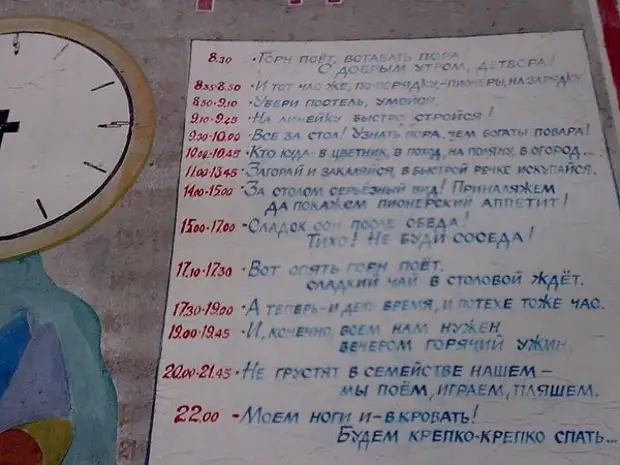 8.30 - Горн поёт, вставать пора.
С добрым утром, детвора!
8.35-8.50 - И тот час же, по порядку, - пионеры, на зарядку.
8.50-9.10 - Убери постель, умойся,
9.10-9.25 - На линейку быстро стройся!
9.30-10.00 - Все за стол! Узнать пора, чем богаты повара!
10.00-10.45 - Кто куда - в цветник, в поход, на поляну, в огород...
11.00-13.45 - Загорай и закаляйся, в быстрой речке искупайся.
14.00-15.00 - За столом серьёзный вид! Приналяжем
да покажем пионерский аппетит!
15.00-17.00 - Сладок сон после обеда!
Тихо! Не буди соседа!
17.10-17.30 - Вот опять горн поёт.
сладкий чай в столовой ждёт.
17.30-19.00 - А теперь - и делу время, и потехе тоже час.
19.00-19.45 - И, конечно, всем нам нужен
вечером горячий ужин.
20.00-21.45 - Не грустят в семействе нашем -
мы поём, играем, пляшем.
22.00 - Моем ноги и - в кровать!
Будем крепко-крепко спать...